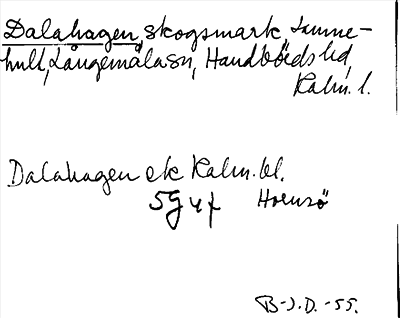 Dalahagen, skogsmark, Lunne-
hult, Långemåla sn, Handbörds hd,
Kalm. l.
Dalahagen ek Kalm. bl.
5G 4f Hornsö
B-J.D. -55.